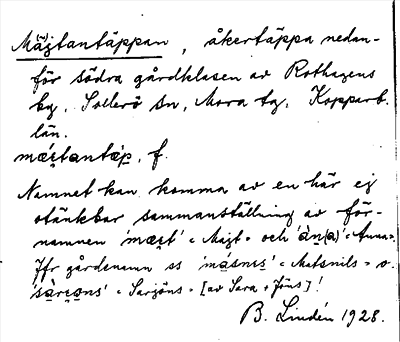 Mäjtantäppan, åkertäppa nedan-
för södra gårdklasen av Rothagens
by, Sollerö sn, Mora tg, Kopparb.
län.
mæ̀i̯tantæ̀p, f.
Namnet kan komma av en här ej
otänkbar sammanställning av för-
namnen 'mæi̯t' = Majt- och 'àn(a)' = Anna-.
Jfr gårdsnamn ss 'másnis' = Matsnils- o.
= Sarjöns- [av Sara + Jöns]!
B. Lindén 1928.